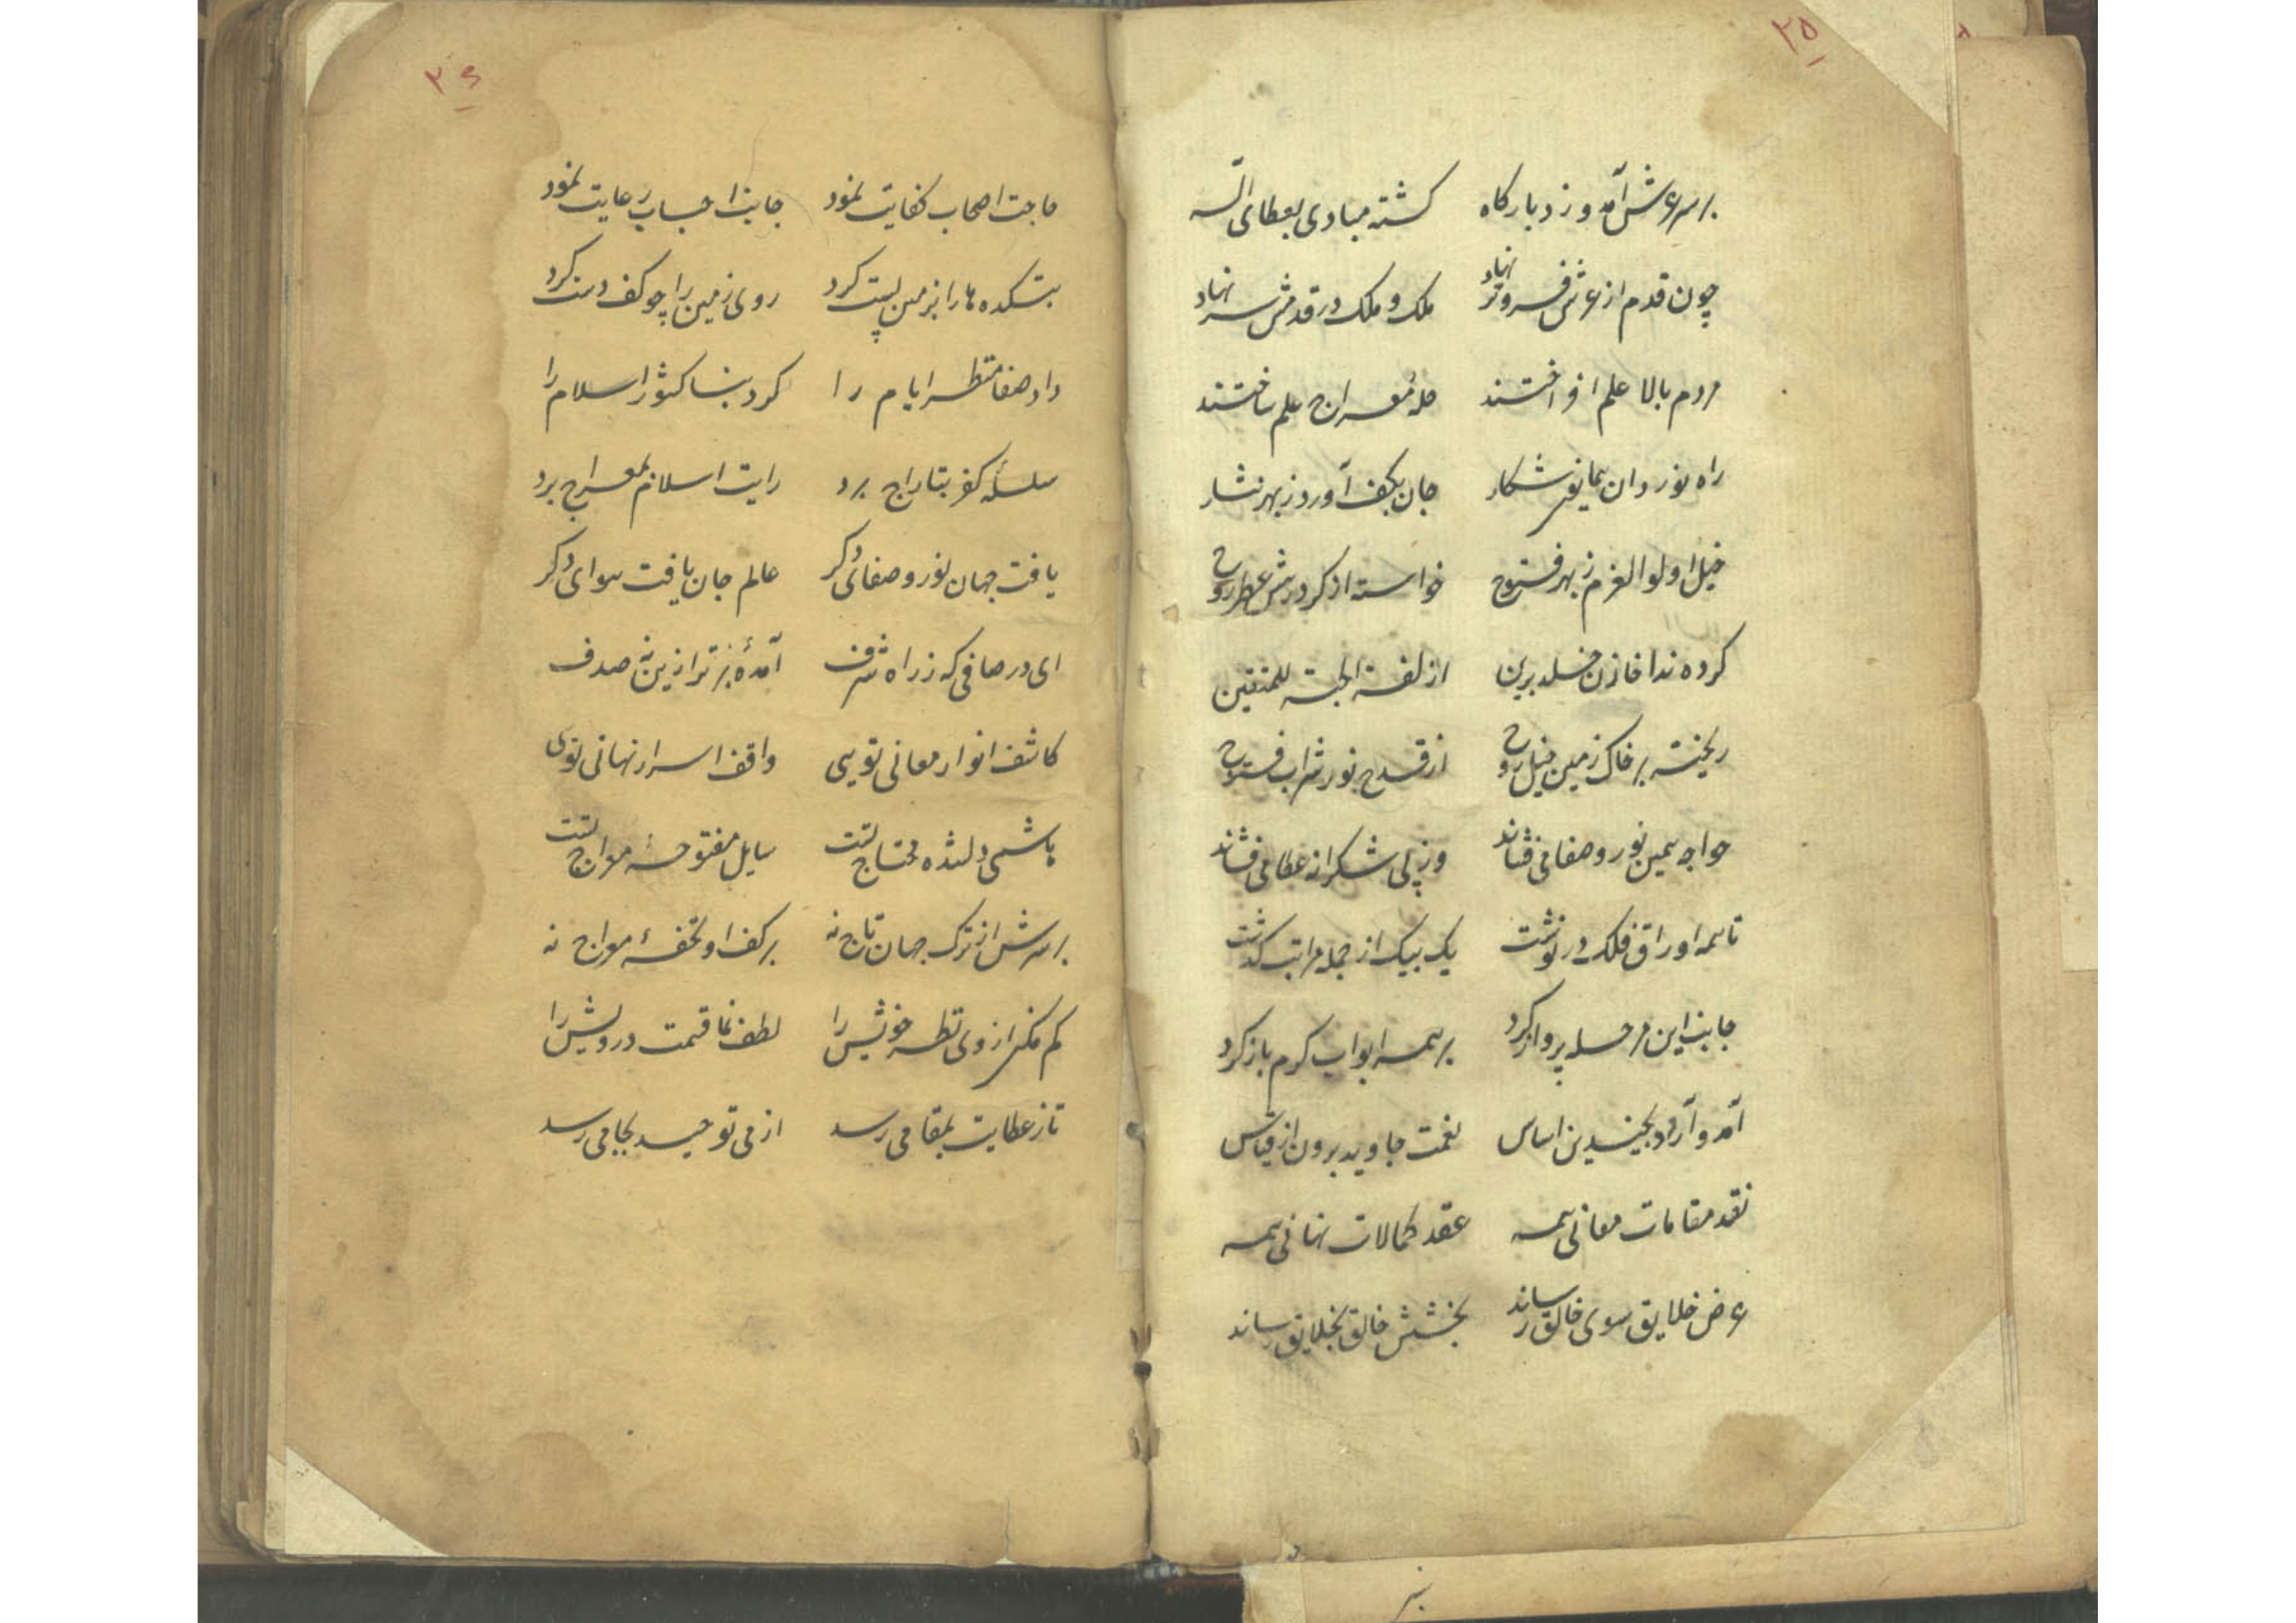 ۲۵
برسر عرش آمد و زد بارکاه کشته مبادی بعطای اله
چون قدم از عرش فروتر نهاد ملک و ملک در قدمش سر نهاد
مردم بالا علم افراختند حله معراج علم ساختند
راه نوردان همایون شکار جان بکف آورد ز بهر نثار
خیل اولوالعزم ز بهر فتوح خواسته از کرد رهش عطر روح
کرده ندا خازن خلد برین ازلفت الجنة للمتقین
ریخته بر خاک زمین خیل روح از قدح نور شراب فتوح
خواجه همین نور و صفا می فشاند وز پی شکرانه عطا می فشاند
تا همه اوراق فلک در نوشت یک بیک از جمله مراتب کذشت
جانب این مرحله پرواز کرد بر همه ابواب کرم باز کرد
آمد و آورد بچندین اساس نعمت جاوید برون از قیاس
نقد مقامات معانی همه عقد کمالات نهانی همه
عرض خلایق سوی خالق رساند بخشش خالق بخلایق رساند
۲۶
حاجت اصحاب کفایت نمود جانب احباب رعایت نمود
بتکده ها را بزمین پست کرد روی زمین را چو کف دست کرد
داد صفا منظر ایام را کرد بنا کشور اسلام را
سلسلهٔ کفر بتاراج برد رایت اسلام بمعراج برد
یافت جهان نور و صفای دکر عالم جان یافت هوای دکر
ای در صافی که ز راه شرف آمدهٔ برتر ازین نه صدف
کاشف انوار معانی تویی واقف اسرار نهانی توی
هاشمی دلشده محتاج تست سایل مفتوحهٔ معراج تست
بر سرش از ترک جهان تاج نه بر کف او تحفهٔ معراج نه
کم مکن از وی نظر خویش را لطف نما قسمت درویش را
تا ز عطایت بمقامی رسد از می توحید بجامی رسد